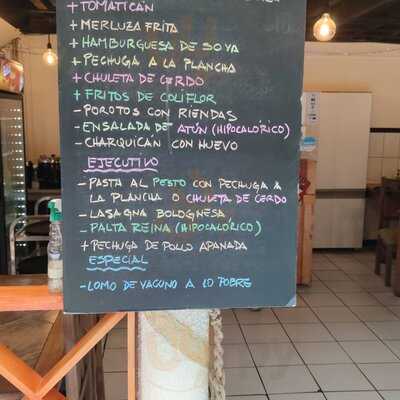 + TOMATICÁN
+ MERLUZA FRITA
+ HAMBURGUESA DE SOYA
+ PECHUGA A LA PLANCHA
+ CHULETA DE CERDO
+ FRITOS DE COLIFLOR
- POROTOS CON RIENDAS
- ENSALADA DE ATÚN (HIPOCALÓRICO)
- CHARQUICÁN CON HUEVO
EJECUTIVO
- PASTA AL PESTO CON PECHUGA A
LA PLANCHA O CHULETA DE CERDO
- LASAGNA BOLOGNESA
- PALTA REINA (HIPOCALÓRICO)
+ PECHUGA DE POLLO APANADA
ESPECIAL
- LOMO DE VACUNO A LO POBRE